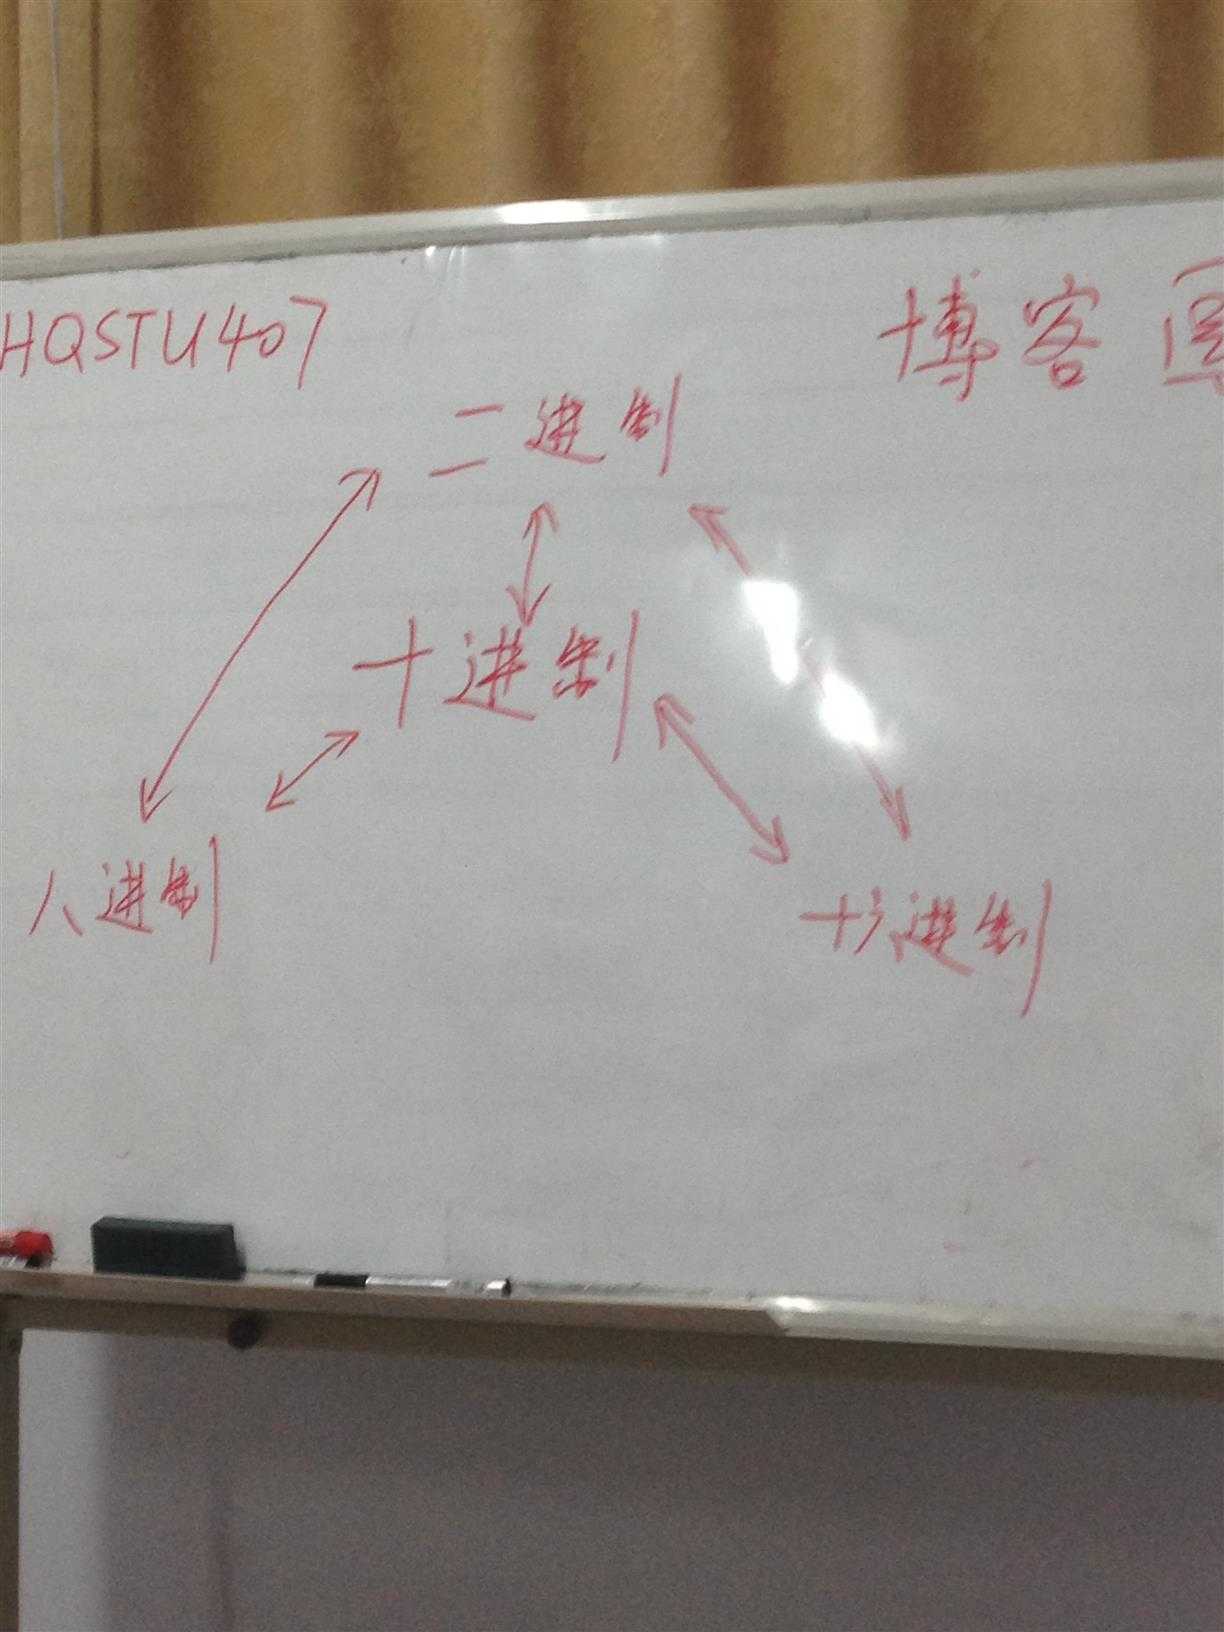 HQSTU407
博客园
二进制
十进制
八进制
十六进制